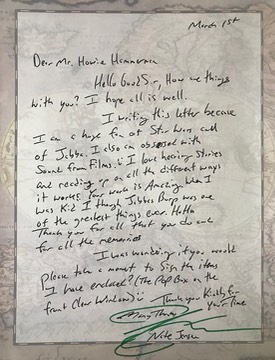 March 1st
Deir Mr. Howie Hammerman
Hello Good Sir, How are things
with you? I hope all is well.
I writing this letter becase
I am a huge fan of Star Wars and
of Jabba. I also am obsessed with
Sound from Films. I love hearing stories
and reading up on all the different ways
it works! Your work is Amazing. When I
was Kid I though Jabba's Burp was one
of the greatest things ever. Haha
Thank you for all that you do and
for all the memories
I was wondering, if you would
Please take a moment to Sign the items
I have enclosed? (The Pop Box on the
front Clear Window)
Thank you Kindly for
your Time
Many Thanks
Nate Jensen